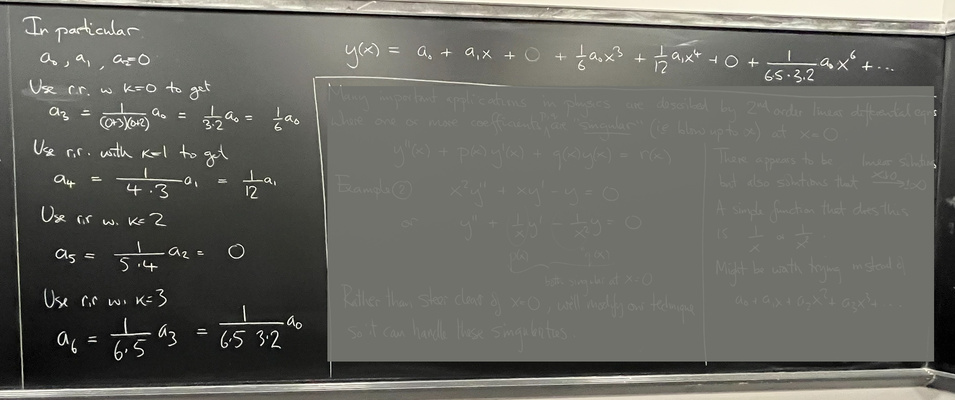 In particular
a₀, a₁, a₂=0
Use r.r. w k=0 to get
a₃ = 1/((0+3)(0+2)) a₀ = 1/(3·2) a₀ = 1/6 a₀
Use r.r. with k=1 to get
a₄ = 1/(4·3) a₁ = 1/12 a₁
Use r.r w. k=2
a₅ = 1/(5·4) a₂ = 0
Use r.r w. k=3
a₆ = 1/(6·5) a₃ = 1/(6·5 3·2) a₀
y(x) = a₀ + a₁x + 0 + 1/6 a₀x³ + 1/12 a₁x⁴ + 0 + 1/(6·5·3·2) a₀x⁶ + ...
Many important applications in physics are described by 2nd order linear differential eqns
where one or more "coefficients" are singular (ie blows up to ∞) at x=0
y''(x) + p(x)y'(x) + q(x)y(x) = r(x)
Example ② x²y'' + xy' - y = 0
or y'' + 1/x y' - 1/x² y = 0
p(x) q(x)
both singular at x=0
Rather than steer clear of x=0, we'll modify our technique
so it can handle these singularities.
There appears to be linear solution
but also solutions that
A simple function that does this
is 1/x or 1/x²
Might be worth trying instead of
a₀ + a₁x + a₂x² + a₃x³ + ...